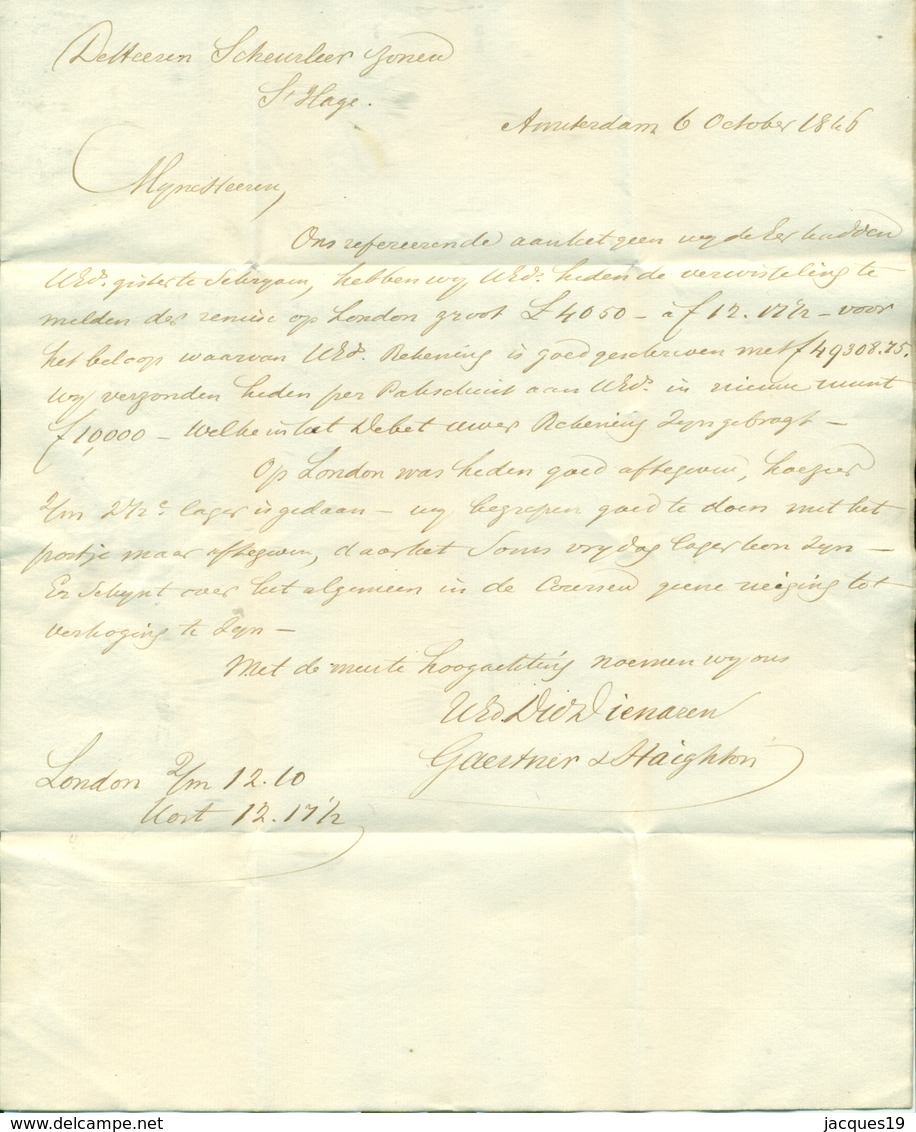 De Heeren Scheurleer Zonen
s'Hage.
Amsterdam 6 October 1846
Myne Heeren,
Ons refereerende aan het geen wy de Eer hadden
UEd. gister te Schryven, hebben wy UEd. heden de verwisseling te
melden der remise op London groot £ 4050 – à f 12.17½ – voor
het beloop waarvan UEd. Rekening is goedgeschreven met f 49308.75.
wy verzonden heden per Pakschuit aan UEd. in nieuwe munt
f 10,000 – Welke in het Debet uwer Rekening zyn gebragt –
Op London was heden goed aftegeven, hoezeer
2/m 2½ c. lager is gedaan – wy begrepen goed te doen met het
postje maar aftegeven, daar het Soms vrydag lager kon zyn –
Er Schynt over het algemeen in de Coursen geene neiging tot
verhoging te zyn –
Met de meeste hoogachting noemen wy ons
UEd. DWD Dienaren
Gaertner & Haighton
London 2/m 12.10
Kort 12.17½
delcampe.net
jacques19